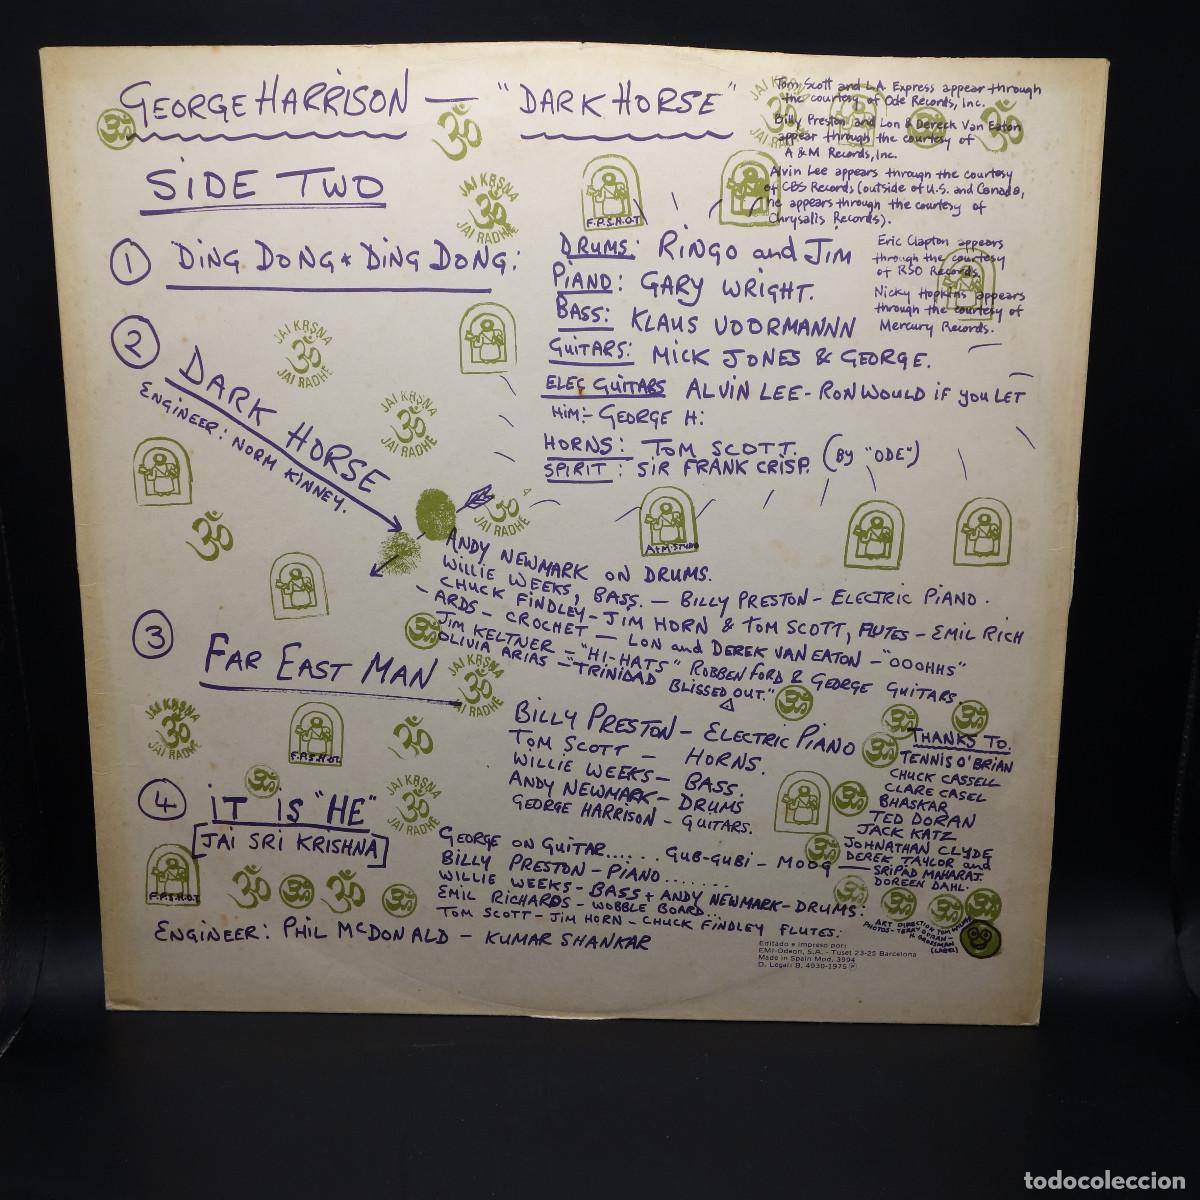 GEORGE HARRISON — "DARK HORSE"
SIDE TWO
Tom Scott and L.A. Express appear through
the courtesy of Ode Records, Inc.
Billy Preston and Lon & Dereck Van Eaton
appear through the courtesy of
A & M Records, Inc.
Alvin Lee appears through the courtesy
of CBS Records (outside of U.S. and Canada,
he appears through the courtesy of
Chrysalis Records).
Eric Clapton appears
through the courtesy
of RSO Records.
Nicky Hopkins appears
through the courtesy of
Mercury Records.
① DING DONG * DING DONG:
DRUMS: RINGO and JIM
PIANO: GARY WRIGHT.
BASS: KLAUS VOORMANNN
GUITARS: MICK JONES & GEORGE.
ELEC GUITARS ALVIN LEE - RON WOULD IF YOU LET
HIM:- GEORGE H:
HORNS: TOM SCOTT. (BY "ODE")
SPIRIT: SIR FRANK CRISP.
② DARK HORSE
ENGINEER: NORM KINNEY.
ANDY NEWMARK ON DRUMS.
WILLIE WEEKS, BASS. — BILLY PRESTON - ELECTRIC PIANO.
CHUCK FINDLEY - JIM HORN & TOM SCOTT, FLUTES - EMIL RICH
- ARDS - CROCHET — LON and DEREK VAN EATON - "OOOHHS"
JIM KELTNER - "HI-HATS" ROBBEN FORD & GEORGE GUITARS.
OLIVIA ARIAS - "TRINIDAD BLISSED OUT."
③ FAR EAST MAN
BILLY PRESTON - ELECTRIC PIANO
TOM SCOTT — HORNS.
WILLIE WEEKS - BASS.
ANDY NEWMARK - DRUMS
GEORGE HARRISON - GUITARS.
④ IT IS "HE"
[JAI SRI KRISHNA]
GEORGE ON GUITAR...... GUB-GUBI - MOOG
BILLY PRESTON - PIANO.......
WILLIE WEEKS - BASS + ANDY NEWMARK - DRUMS:
EMIL RICHARDS - WOBBLE BOARD...
TOM SCOTT - JIM HORN - CHUCK FINDLEY FLUTES:
ENGINEER: PHIL McDONALD - KUMAR SHANKAR
THANKS TO.
TENNIS O'BRIAN
CHUCK CASSELL
CLARE CASEL
BHASKAR
TED DORAN
JACK KATZ
JOHNATHAN CLYDE
DEREK TAYLOR and
SRIPAD MAHARAJ
DOREEN DAHL.
ART DIRECTION TOM WILKES
PHOTOS - TERRY DORAN -
(LABEL)
Editado e impreso por:
EMI-Odeon, S.A. - Tuset 23-25 Barcelona
Made in Spain Mod. 3994
D. Legal: B. 4930-1975 Ⓟ
JAI KRSNA
ॐ
JAI RADHE
JAI KRSNA
ॐ
JAI RADHE
JAI KRSNA
ॐ
JAI RADHE
JAI KRSNA
ॐ
JAI RADHE
JAI KRSNA
ॐ
JAI RADHE
JAI KRSNA
ॐ
JAI RADHE
ॐ
JAI RADHE
F.P.S.H.O.T
A+M. STUDIO
F.P.S.H.O.T.
F.P.S.H.O.T
todocoleccion